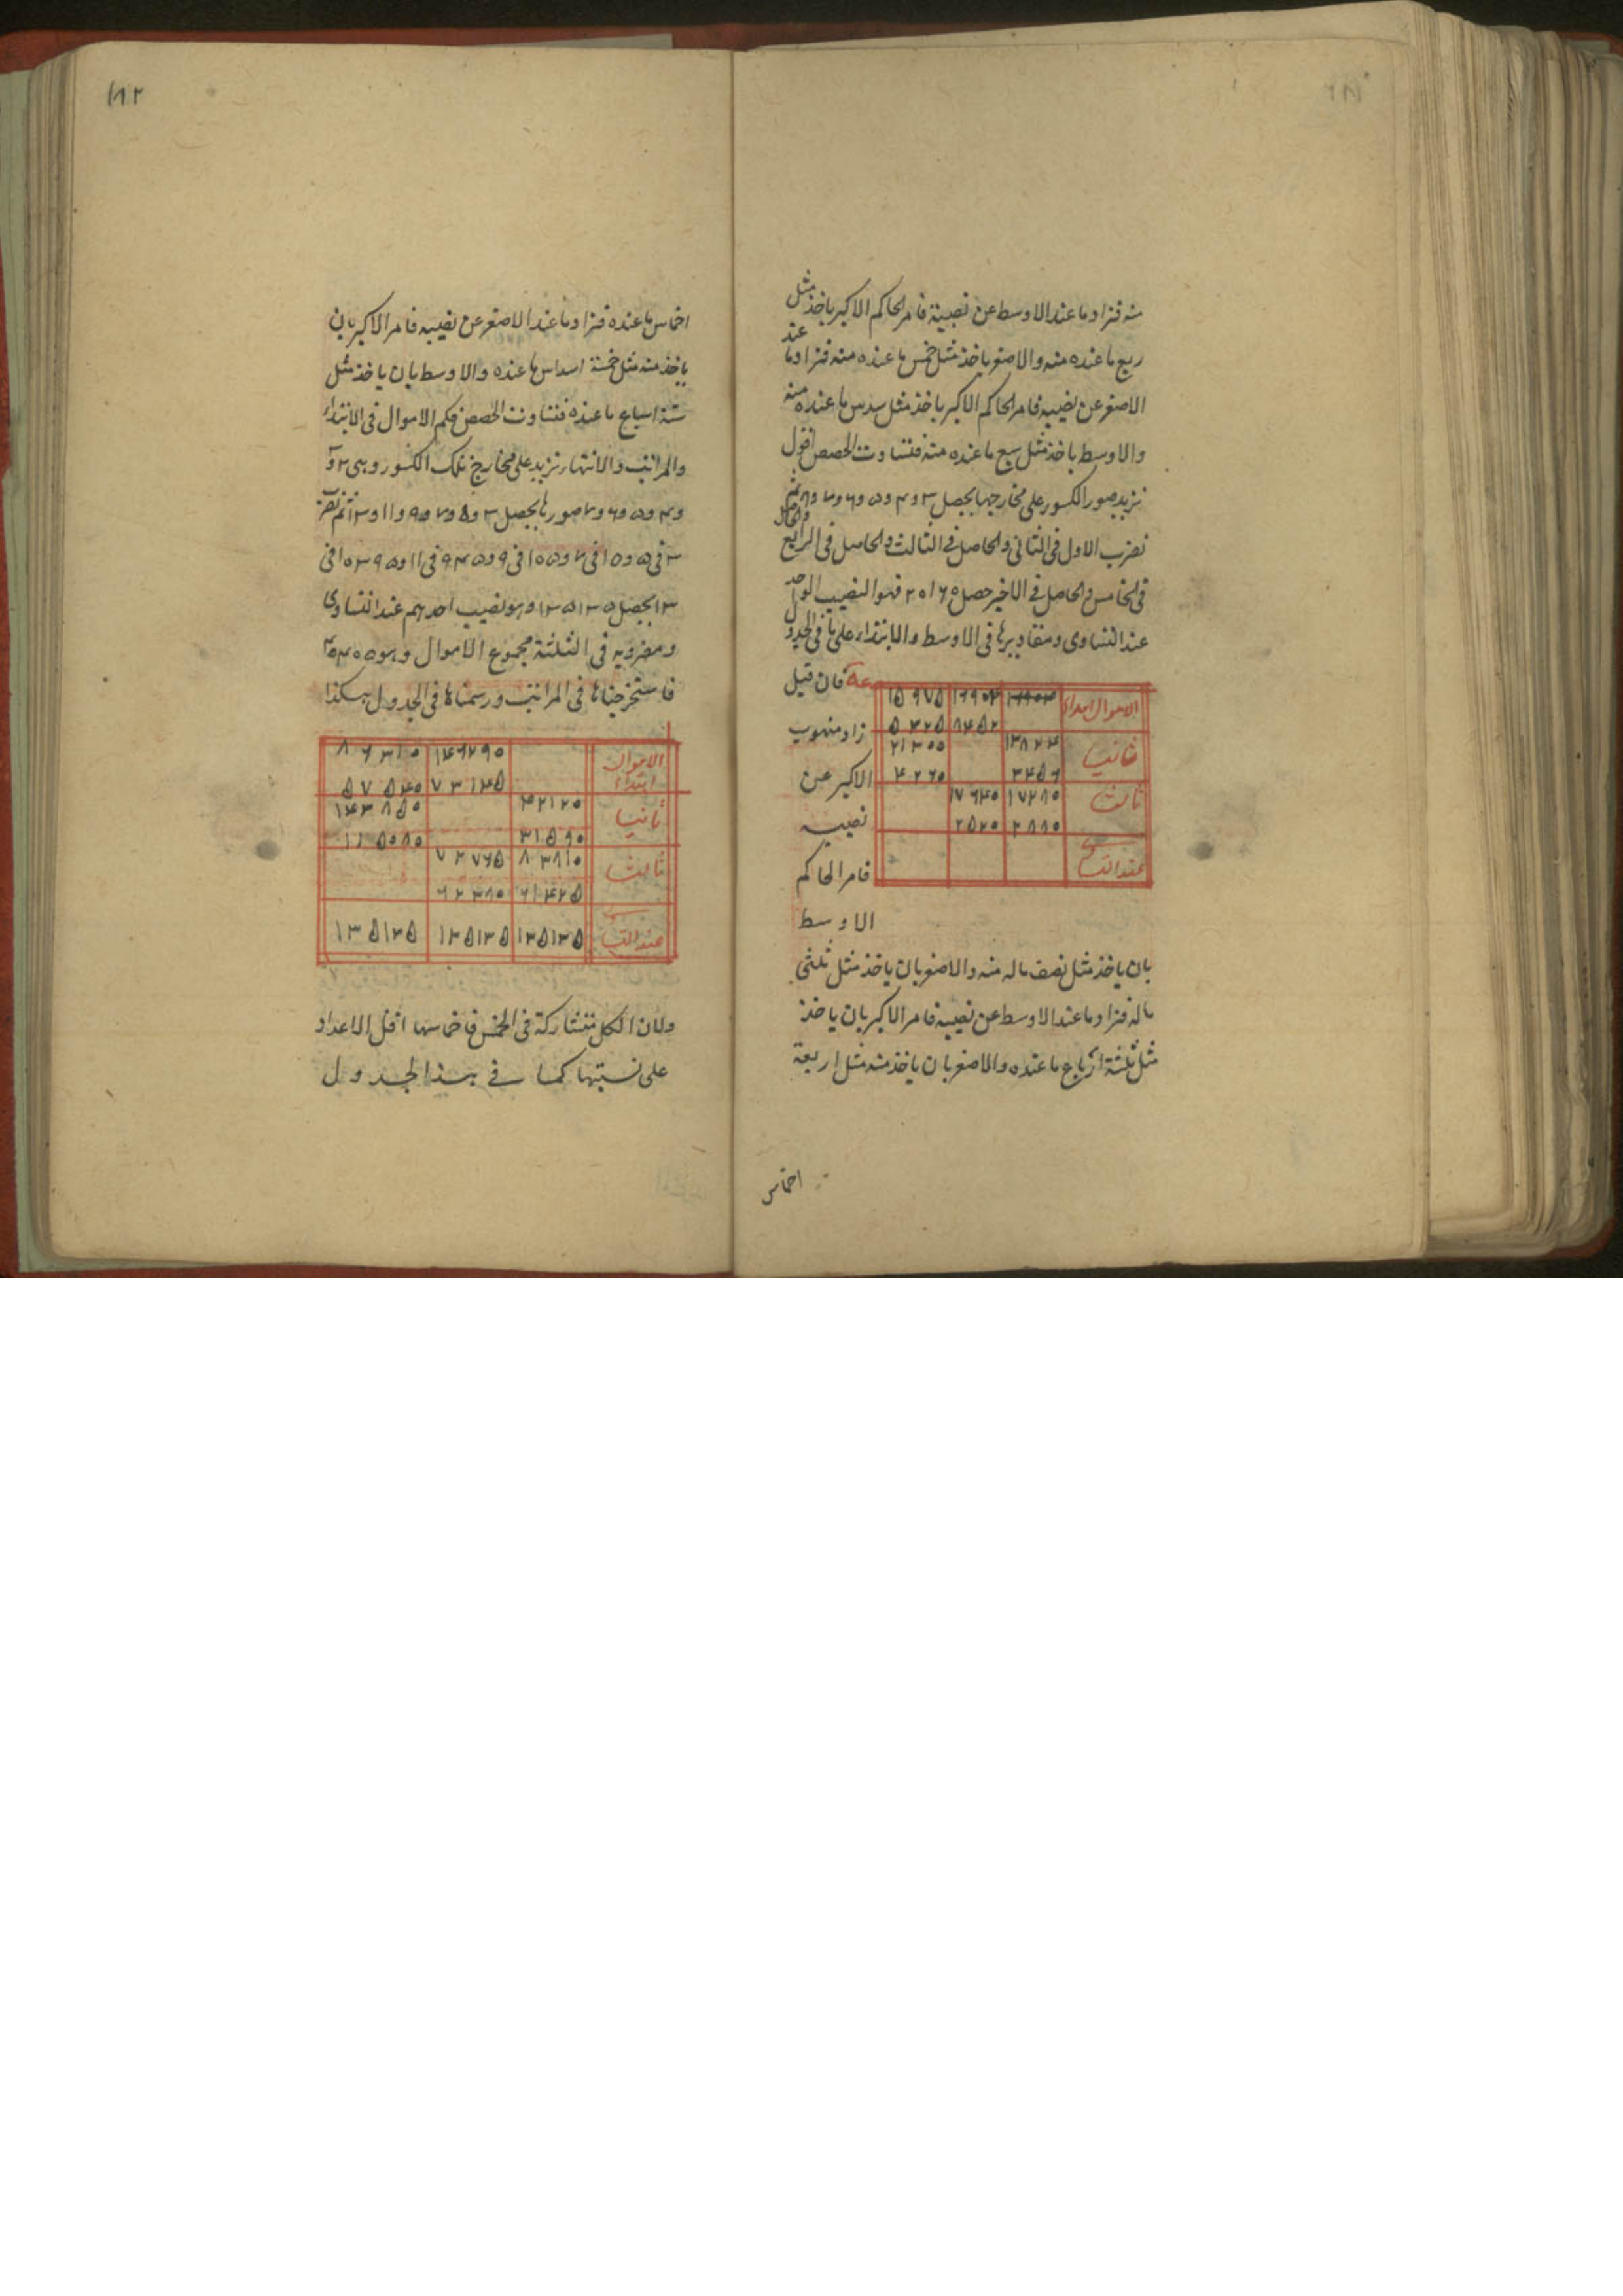 منه فزاد ما عند الاوسط عن نصيبه فامر الحاكم الاكبر ياخذ مثل
ربع ما عنده منه والاصغر ياخذ مثل خمس ما عنده منه فزاد ما عند
الاصغر عن نصيبه فامر الحاكم الاكبر ياخذ مثل سدس ما عنده منه
والاوسط ياخذ مثل سبع ما عنده منه فتساوت الحصص اقول
نزيد صور الكسور على مخارجها يحصل ٣ و ٤ و ٥ و ٦ و ٧ و ٨ ثم
نضرب الاول فى الثانى والحاصل فى الثالث والحاصل فى الرابع والحاصل
فى الخامس والحاصل فى الاخير حصل ٢٠١٦٠ فهو النصيب الواحد
عند التساوى ومقاديرها فى الاوسط والابتداء على ما فى الجدول
فان قيل
الاموال ابتداء ١٥٩٧٥
٥٣٢٥ ٨٤٥٢
ثانيا ١٣٨٢٤ ٢١٣٠٠
٣٤٥٦ ٤٢٦٠
ثالثا ١٧٢٨٠ ١٧٦٤٠
٢٨٨٠ ٢٥٢٠
زاد منهوب
الاكبر عن
نصيبه
فامر الحاكم
الاوسط
بان ياخذ مثل نصف ماله منه والاصغر بان ياخذ مثل ثلثى
ماله فزاد ما عند الاوسط عن نصيبه فامر الاكبر بان ياخذ
مثل ثلثة ارباع ما عنده والاصغر بان ياخذ منه مثل اربعة
اخماس
١٨٢
اخماس ما عنده فزاد ما عند الاصغر عن نصيبه فامر الاكبر بان
ياخذ منه مثل خمسة اسداس ما عنده والاوسط بان ياخذ مثل
ستة اسباع ما عنده فتساوت الحصص فكم الاموال فى الابتداء
والمراتب والانتهاء نزيد على مخارج تلك الكسور وهى ٢ و ٣
و ٤ و ٥ و ٦ و ٧ صورها يحصل ٣ و ٥ و ٧ و ٩ و ١١ و ١٣ ثم نضرب
٣ فى ٥ و ١٥ فى ٧ و ١٠٥ فى ٩ و ٩٤٥ فى ١١ و ١٠٣٩٥ فى
١٣ يحصل ١٣٥١٣٥ وهو نصيب احدهم عند التساوى
ومضروبه فى الثلثة مجموع الاموال وهو ٤٠٥٤٠٥
فاستخرجناها فى المراتب ورسمناها فى الجدول هكذا
الاموال ابتداء ١٤٦٢٩٠ ٨٦٣١٠
٧٣١٤٥ ٥٧٥٤٠
ثانيا ٤٢١٢٠ ١٤٣٨٥٠
٣١٥٩٠ ١١٥٠٨٠
ثالثا ٧٢٧٦٥
٦١٤٢٥ ٦٢٣٧٠
عند التساوى ١٣٥١٣٥ ١٣٥١٣٥ ١٣٥١٣٥
ولان الكل متشاركة فى الخمس فاخماسها اقل الاعداد
على نسبتها كما فى هذا الجدول